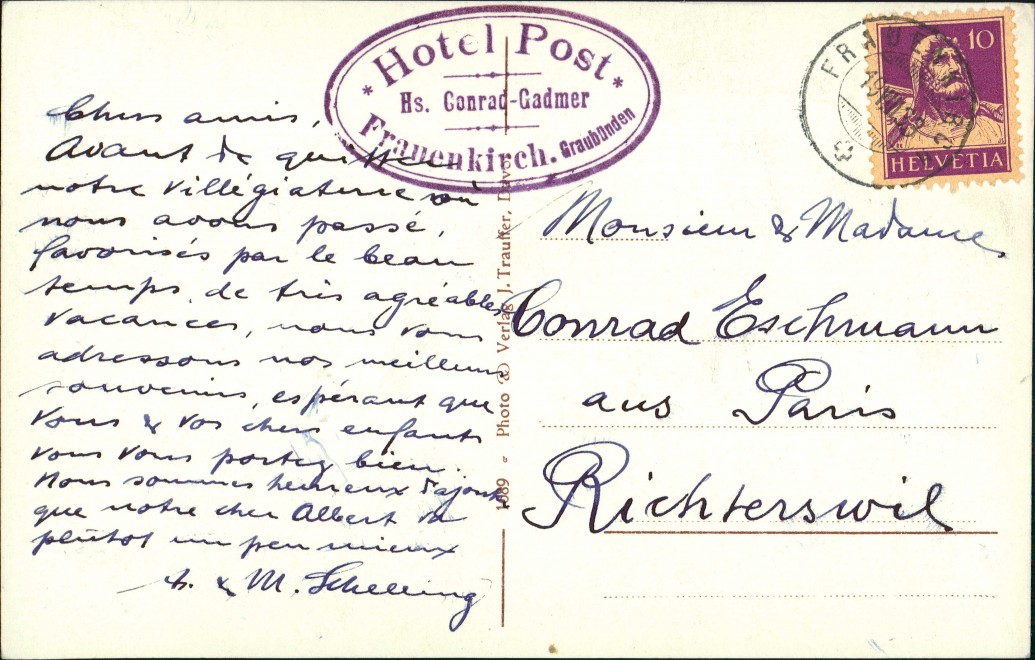 * Hotel Post *
Hs. Conrad-Gadmer
Frauenkirch. Graubünden
10
HELVETIA
Chers amis,
Avant de quitter
notre villégiature où
nous avons passé,
favorisés par le beau
temps, de très agréables
vacances, nous vous
adressons nos meilleurs
souvenirs, espérant que
vous & vos chers enfants
vous vous portez bien.
Nous sommes heureux d'ajouter
que notre cher Albert va
plutôt un peu mieux
& M. Schelling
Photo & Verlag J. Trauffer, Davos
Monsieur & Madame
Conrad Eschmann
aus Paris
Richterswil